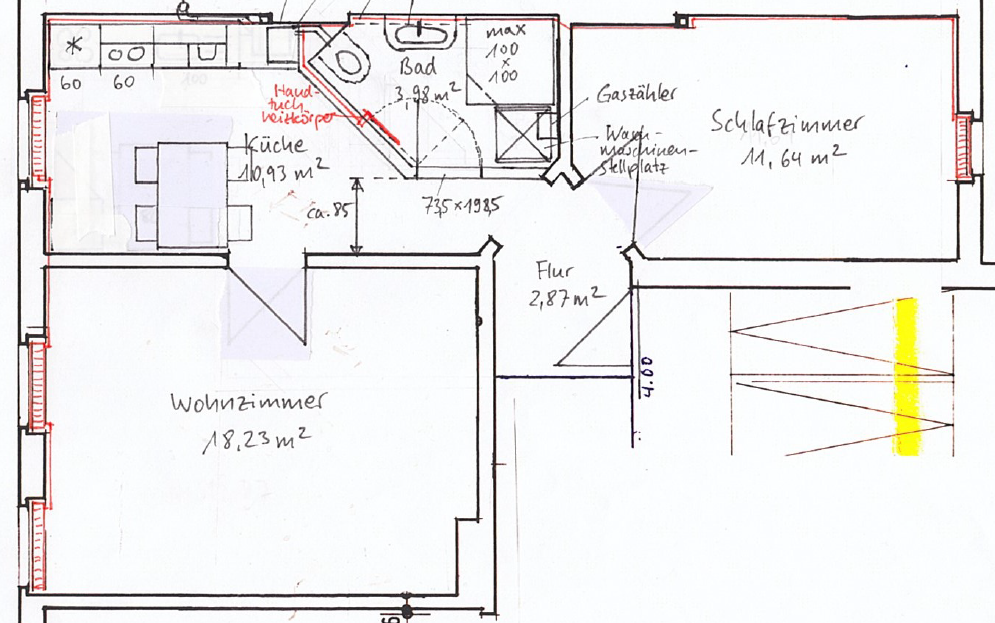 *
60
60
Hand-
tuch-
heizkörper
Bad
3,98 m²
max
100
x
100
Gaszähler
Wasch-
maschinen-
stellplatz
Schlafzimmer
11,64 m²
Küche
10,93 m²
ca. 85
73,5 x 198,5
Flur
2,87 m²
4.00
Wohnzimmer
18,23 m²